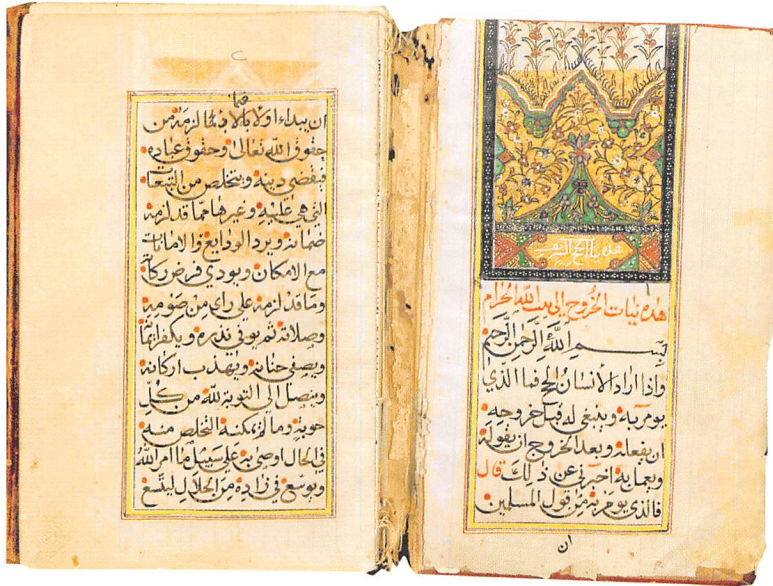 هذه نيات الخروج الى بيت الله الحرام
بسم الله الرحمن الرحيم
واذا اراد الانسان الحج فما الذي
يومر به وينبغي له قبل خروجه
ان يفعله وبعد الخروج ان يقوله
ويعمل به اخبرني عن ذلك قال
فالذي يومر به من قول المسلمين
ان
ان يبداء اولا بالاد لما لزمه من
حقوق الله تعالى وحقوق عباده
فيقضي دينه ويتخلص من التبعات
التي هي عليه وغيرها مما قد لزمه
ضمانه ويرد الودايع والامانات
مع الامكان ويودي فرض زكاته
وما قد لزمه على راى من صومه
وصلاته ثم يوفي نذره ويكفر ايمانه
ويصفى جنانه ويهذب اركانه
وينصل الى التوبة لله من كل
حوبة وما لم يمكنه التخلص منه
في الحال اوصى به على سبيل ما امر الله
ويوسع في زاده من الحلال ليتسع